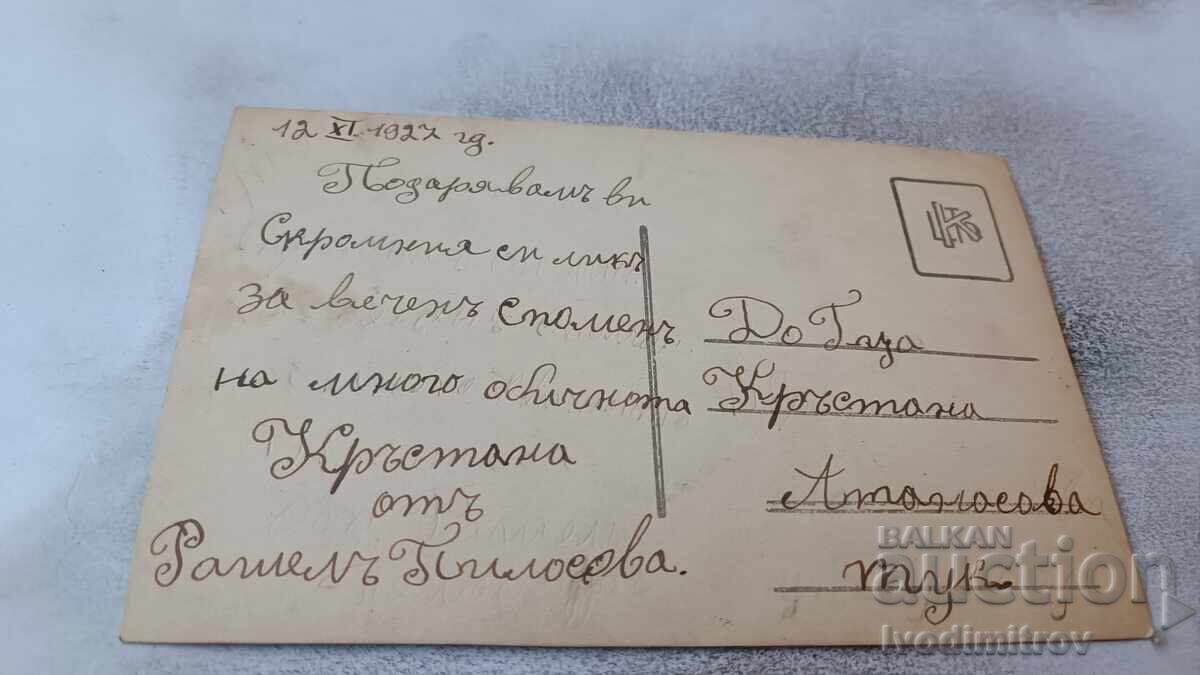 12 XI. 1927 гд.
Подарявамъ ви
Скромния си ликъ
за веченъ споменъ
на много обичната
Кръстана
отъ
Рашелъ Пилосова.
До Гица
Кръстана
Атанасова
тук
BALKAN
auction
Ivodimitrov